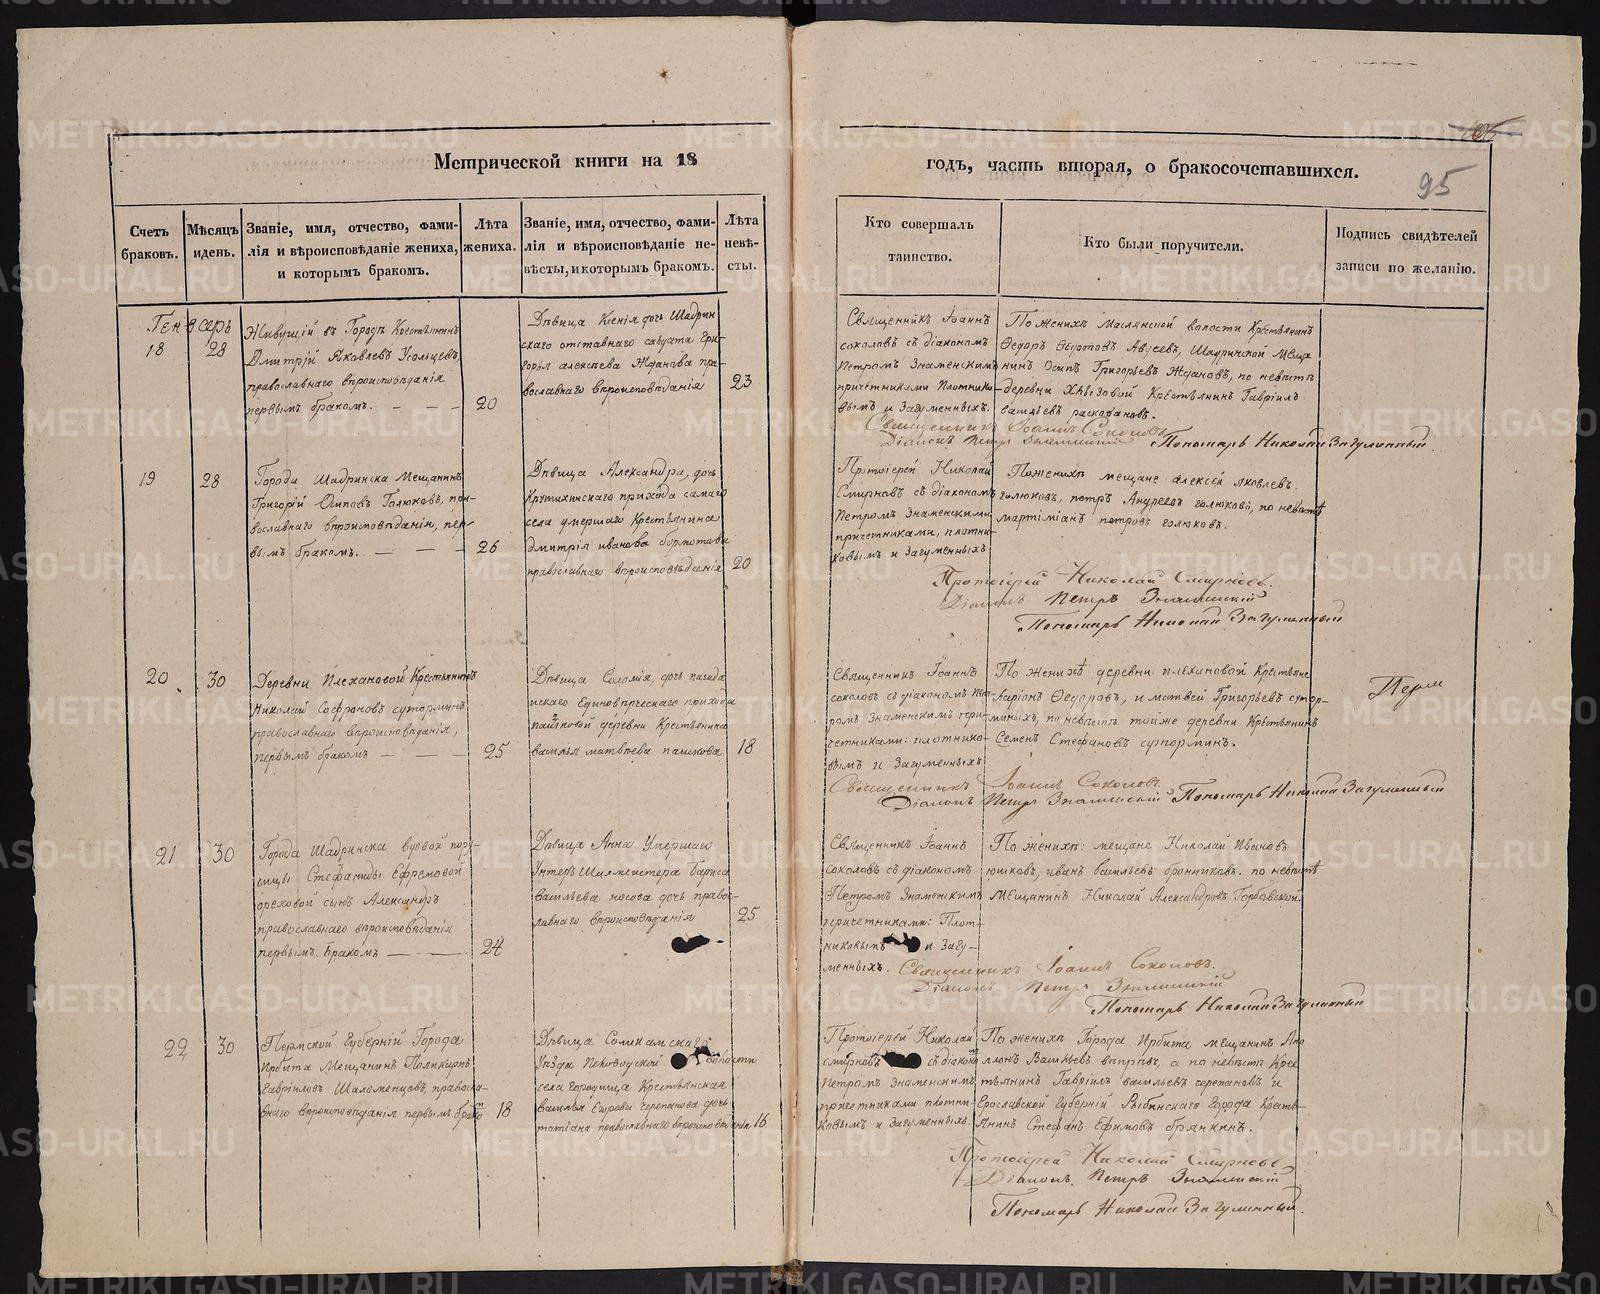 Метрической книги на 18
годъ, часть вторая, о бракосочетавшихся.
95
Счетъ браковъ.
Мѣсяцъ и день.
Званіе, имя, отчество, фами-
лія и вѣроисповѣданіе жениха,
и которымъ бракомъ.
Лѣта
жениха.
Званіе, имя, отчество, фами-
лія и вѣроисповѣданіе не-
вѣсты, и которымъ бракомъ.
Лѣта
невѣ-
сты.
Кто совершалъ
таинство.
Кто были поручители.
Подпись свидѣтелей
записи по желанію.
Генварь
18
28
Живущій въ Городѣ Крестьянинъ
Дмитрій Яковлевъ Усольцевъ,
православнаго вѣроисповѣданія
первымъ бракомъ.
20
Дѣвица Ксенія дочь Шадрин
скаго отставнаго салдата Гри-
горья алексѣева Жданова пра-
вославнаго вѣроисповѣданія
23
Священникъ Іоаннъ
соколовъ съ діакономъ
Петромъ Знаменскимъ
причетниками Плотнико-
вымъ и Загуменныхъ.
По женихѣ Маслянской волости Крестьянинъ
Ѳедоръ Ѳедотовъ Авдеевъ, Шадринской Меща
нинъ Осипъ Григорьевъ Ждановъ, по невѣстѣ
деревни Хлызовой Крестьянинъ Гавріилъ
васильевъ
Священникъ Іоаннъ Соколовъ
Діаконъ Петръ Знаменскій Пономарь Николай Загуменный
19
28
Города Шадринска Мещанинъ
Григорій Осиповъ Голюковъ, пра-
вославнаго вѣроисповѣданіи, пер-
вымъ бракомъ.
26
Дѣвица Александра, дочь
Крутихинскаго прихода самаго
села умершаго Крестьянина
дмитрія иванова Бормотова
православнаго вѣроисповѣданія
20
Протоіерей Николай
Смирновъ съ діакономъ
Петромъ Знаменскимъ
причетниками, плотни-
ковымъ и Загуменныхъ
По женихѣ мещане алексѣй яковлевъ.
голюковъ, петръ Андреевъ голюковъ, по невѣстѣ
мартиміанъ петровъ голюковъ.
Протоіерей Николай Смирновъ.
Діаконъ Петръ Знаменскій
Пономарь Николай Загуменный
20
30
Деревни Плехановой Крестьянинъ
Николай Софроновъ суторминъ
православнаго вѣроисповѣданія,
первымъ бракомъ
25
Дѣвица Соломія, дочь
Единовѣрческаго прихода
пашковой деревни Крестьянина
василья матвѣева пашкова
18
Священникъ Іоаннъ
соколовъ съ діакономъ Пет-
ромъ Знаменскимъ при-
четниками: плотнико-
вымъ и Загуменныхъ
По женихѣ деревни плехановой Крестьяне
Ларіонъ Ѳедоровъ, и матвей Григорьевъ сутор-
миныхъ, по невѣстѣ тойже деревни Крестьянинъ
Семенъ Стефановъ суторминъ.
Священникъ Іоаннъ Соколовъ.
Діаконъ Петръ Знаменскій Пономарь Николай Загуменный
21
30
Города Шадринска вдовой пору-
чицы Стефаниды Ефремовой
ореховой сынъ Александръ
православнаго вѣроисповѣданія
первымъ бракомъ
24
Дѣвица Анна Умершаго
Унтеръ Шихмейстера Бориса
васильева носова дочь право-
славнаго вѣроисповѣданія
25
Священникъ Іоаннъ
соколовъ съ діакономъ
Петромъ Знаменскимъ
причетниками: Плот-
никовымъ и Загу-
менныхъ.
По женихѣ: мещане Николай Ивановъ
юшковъ, иванъ васильевъ бронниковъ. по невѣстѣ
мещанинъ Николай Александровъ
Священникъ Іоаннъ Соколовъ.
Діаконъ Петръ Знаменскій
Пономарь Николай Загуменный
22
30
Пермской Губерніи Города
Ирбита Мещанинъ Поликарпъ
Гавріиловъ Шаломенцовъ, правосла-
внаго вѣроисповѣданія первымъ брако
18
Дѣвица Соликамскаго
Уѣзда волости
села городища Крестьянская
василья Егорова черепанова дочь
татіана православнаго вѣроисповѣданія
16
Протоіерей Николай
смирновъ съ діакономъ
Петромъ Знаменскимъ
причетниками плотни-
ковымъ и Загуменныхъ.
По женихѣ Города Ирбита мещанинъ Апо
ллонъ а по невѣстѣ Крес
тьянинъ Гавріилъ васильевъ черепановъ и
Ярославской Губерніи Рыбинскаго Города Кресть-
янинъ Стефанъ Ефимовъ брянкинъ.
Протоіерей Николай Смирновъ
Діаконъ Петръ Знаменскій
Пономарь Николай Загуменный.
METRIKI.GASO-URAL.RU